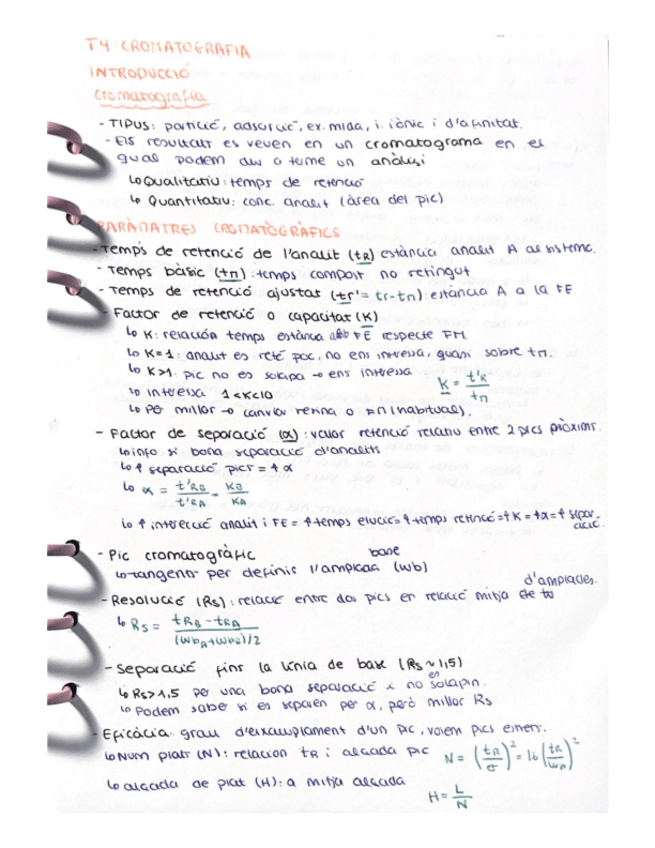 T4 CROMATOGRAFIA
INTRODUCCIÓ
Cromatografia
- TIPUS: partició, adsorció, ex. mida, i. iònic i d'afinitat.
- Els resultats es veuen en un cromatograma en el
qual podem du a terme un anàlisi
↳ Qualitatiu: temps de retenció
↳ Quantitatiu: conc. analit (àrea del pic)
PARÀMATRES CROMATOGRÀFICS
- Temps de retenció de l'analit (tR) estància analit A al sistema.
- Temps bàsic (tM): temps compost no retingut
- Temps de retenció ajustat (tr' = tr-tM): estància A a la FE
- Factor de retenció o capacitat (K)
↳ K: relación temps estància FE respecte FM.
↳ K=1: analit es reté poc, no ens interessa, quasi sobre tM.
↳ K>1: pic no es solapa → ens interessa
↳ interessa 1<K<10
K = t'R / tM
↳ Per millor → canviar reïna o FM (habitual).
- Factor de separació (α): valor retenció relatiu entre 2 pics pròxims.
↳ info si bona separació d'analits
↳ ↑ separació pics = ↑ α
↳ α = t'RB / t'RA = KB / KA
↳ ↑ interacció analit i FE = ↑ temps elució = ↑ temps retenció = ↑ K = ↑ α = ↑ separ-
ació.
- Pic cromatogràfic base
↳ tangents per definir l'amplada (wb)
d'amplades.
- Resolució (Rs): relació entre dos pics en relació mitja de
↳ Rs = (tRB - tRA) / ((wbA + wbB)/2)
- Separació fins la línia de base (Rs ~ 1,5)
↳ Rs > 1,5 per una bona separació i no es solapin.
↳ Podem saber si es separen per α, però millor Rs
- Eficàcia: grau d'eixamplament d'un pic, volem pics estrets.
↳ Núm plats (N): relacion tR i alçada pic N = (tR/σ)² = 16 (tR/wb)²
↳ alçada de plat (H): a mitja alçada
H = L/N